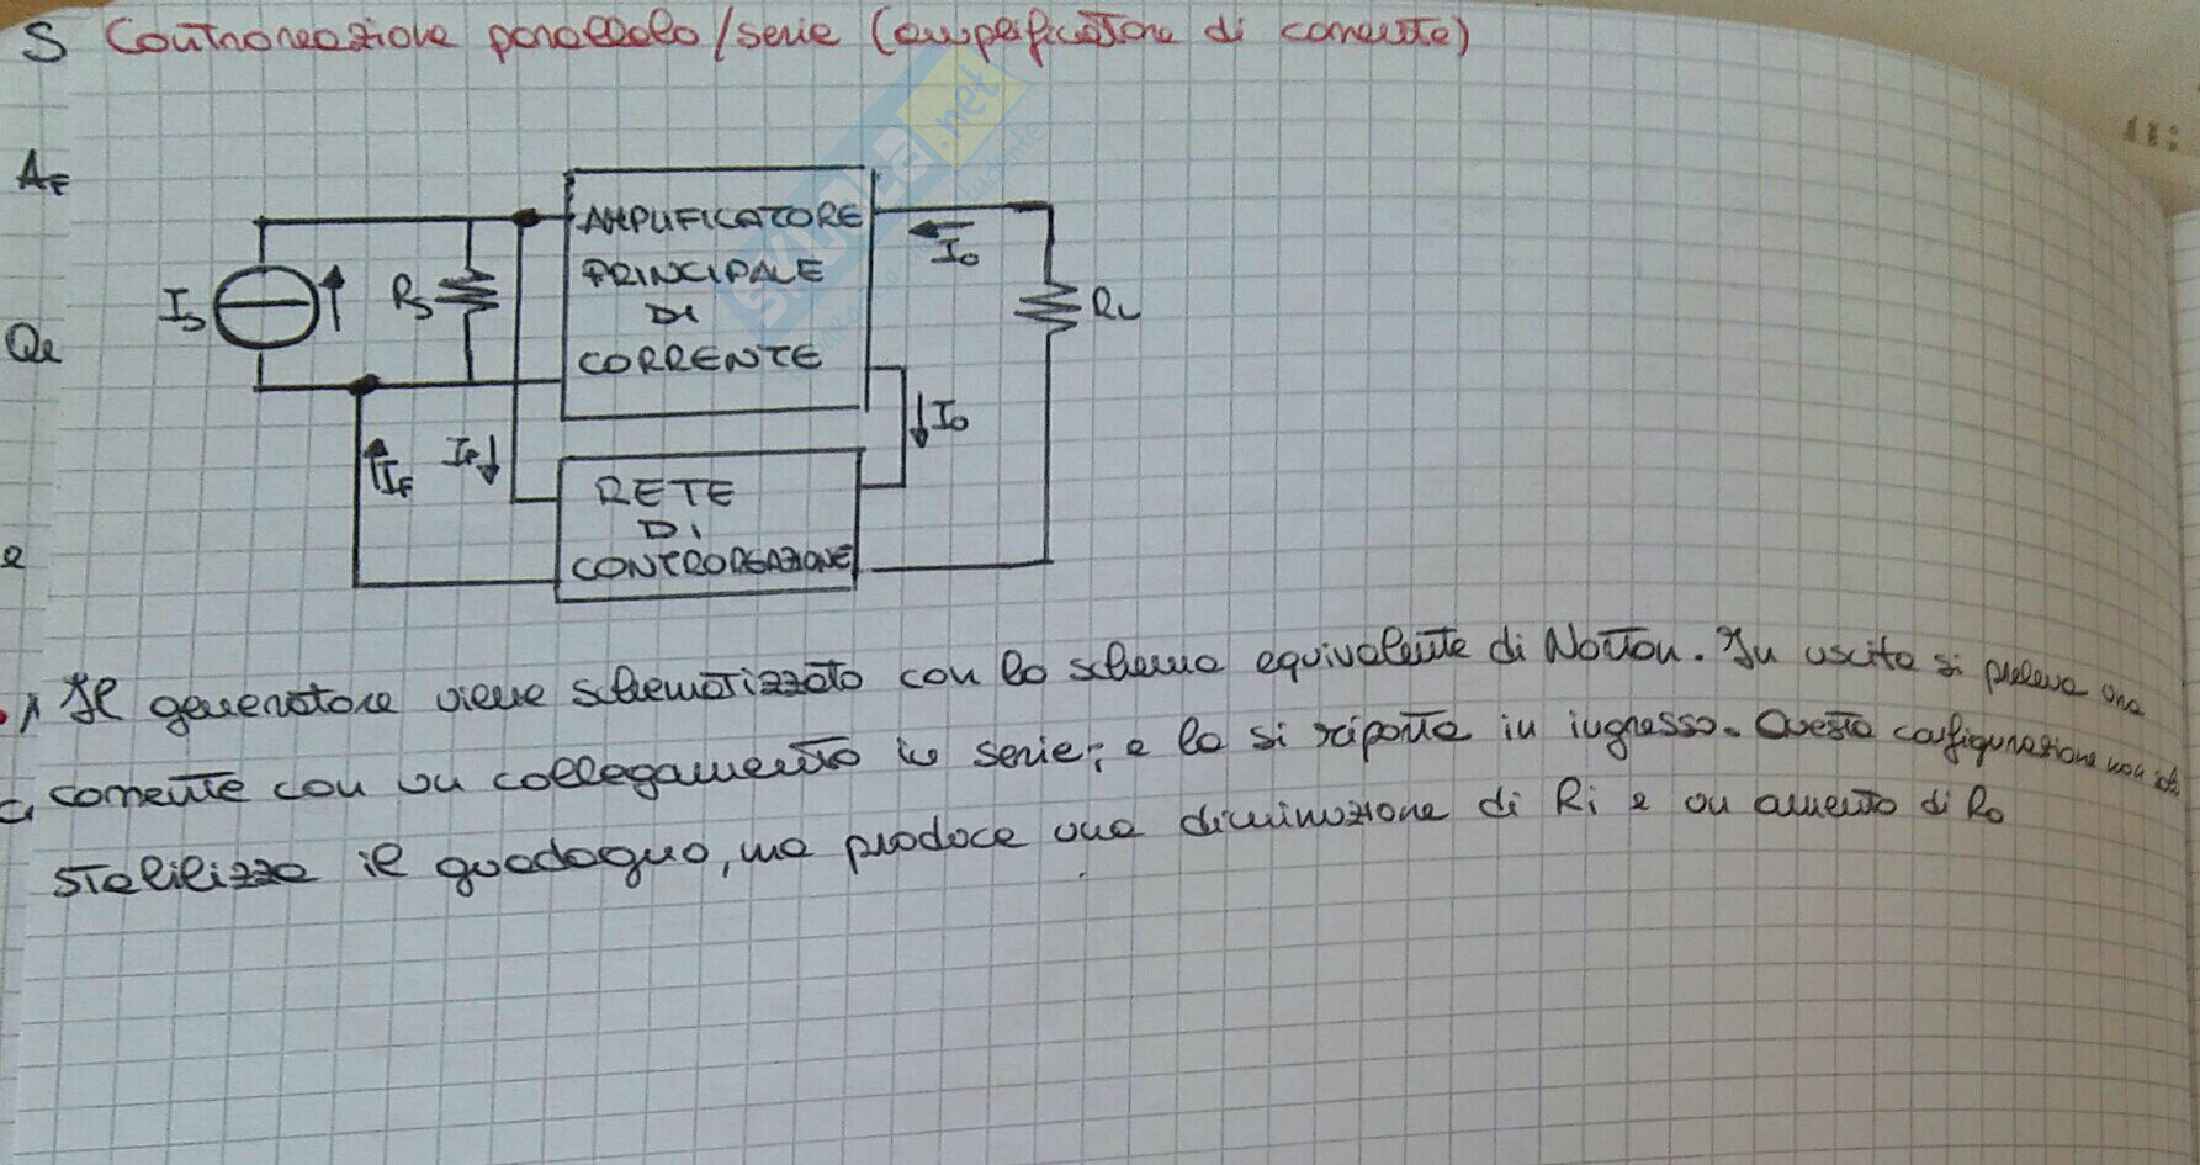 S Controreazione parallelo/serie (amplificatore di corrente)
AF
AMPLIFICATORE
PRINCIPALE
DI
CORRENTE
Io
IS
RS
RL
Io
IF
IF
RETE
DI
CONTROREAZIONE
e
Il generatore viene schematizzato con lo schema equivalente di Norton. In uscita si preleva una
corrente con un collegamento in serie; e la si riporta in ingresso. Questa configurazione non
stabilizza il guadagno, ma produce una diminuzione di Ri e un aumento di Ro
skuola.net